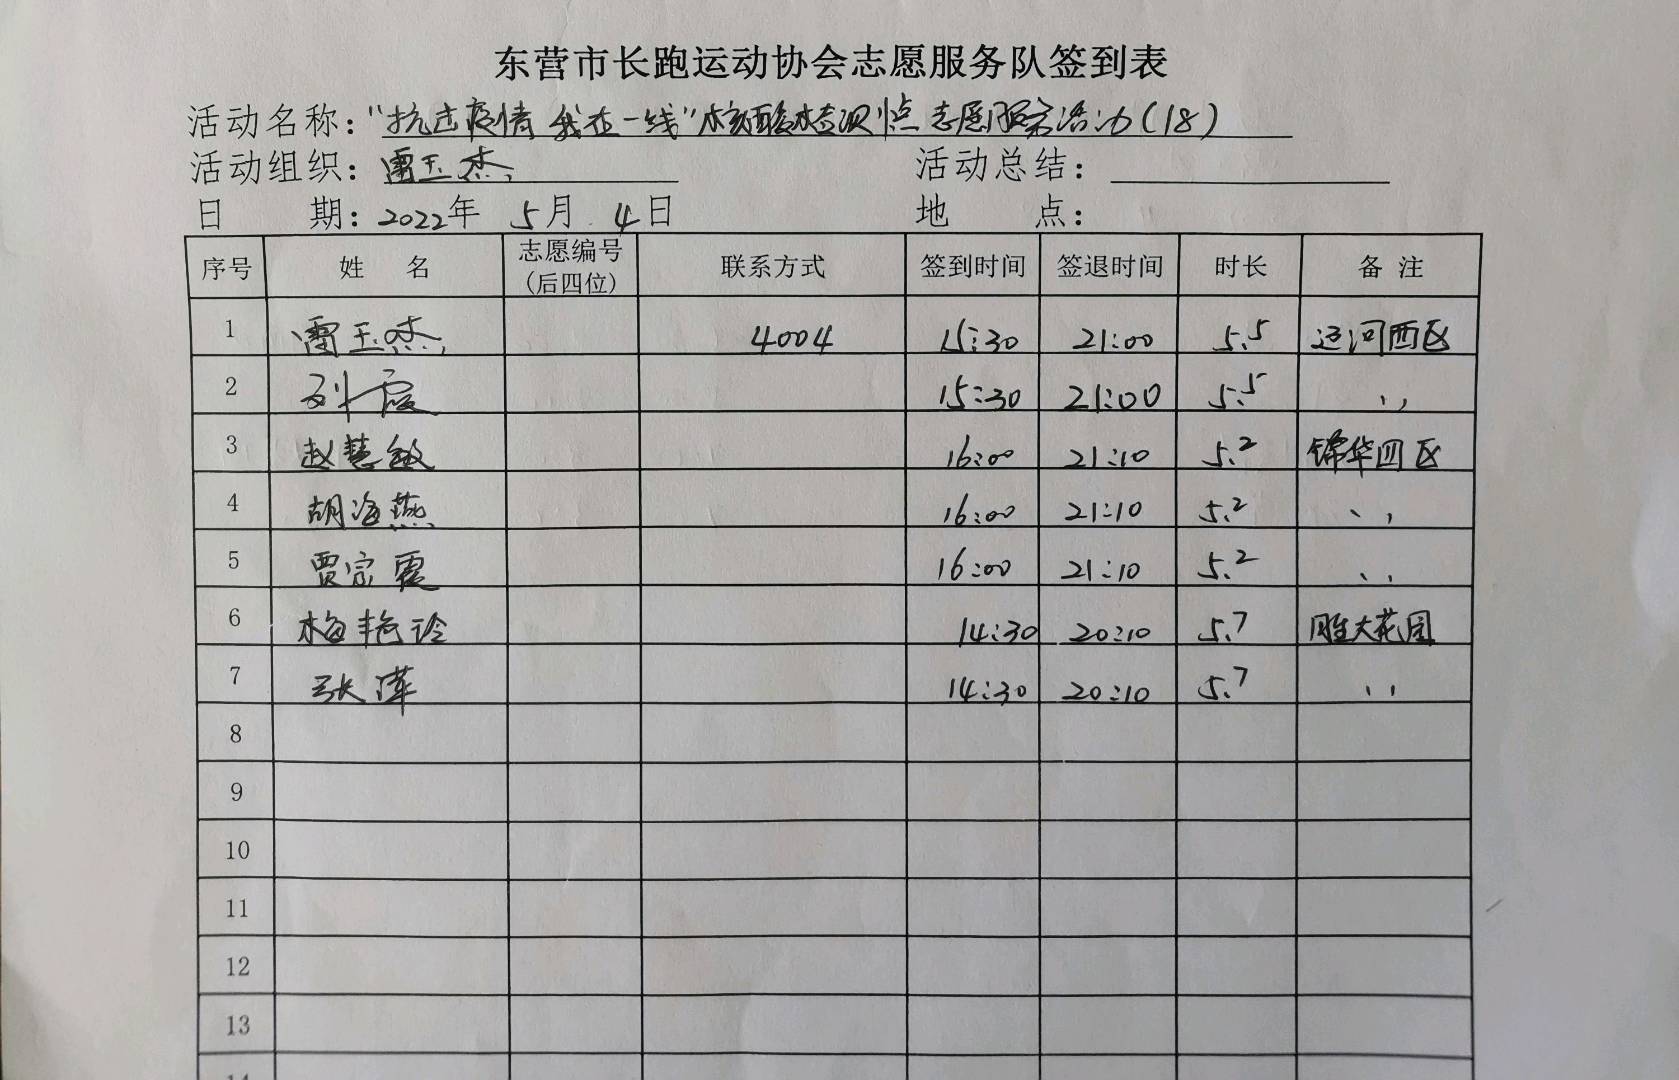 东营市长跑运动协会志愿服务队签到表
活动名称：“抗击疫情 我在一线”核酸检测点志愿服务活动(18)
活动组织：雷玉杰 活动总结：
日 期：2022年 5月 4日 地 点：
序号 姓 名 志愿编号(后四位) 联系方式 签到时间 签退时间 时长 备 注
1 雷玉杰 4004 15:30 21:00 5.5 运河西区
2 刘霞 15:30 21:00 5.5 〃
3 赵慧敏 16:00 21:10 5.2 锦华四区
4 胡海燕 16:00 21:10 5.2 〃
5 贾宗霞 16:00 21:10 5.2 〃
6 梅艳玲 14:30 20:10 5.7 胜大花园
7 张萍 14:30 20:10 5.7 〃
8
9
10
11
12
13